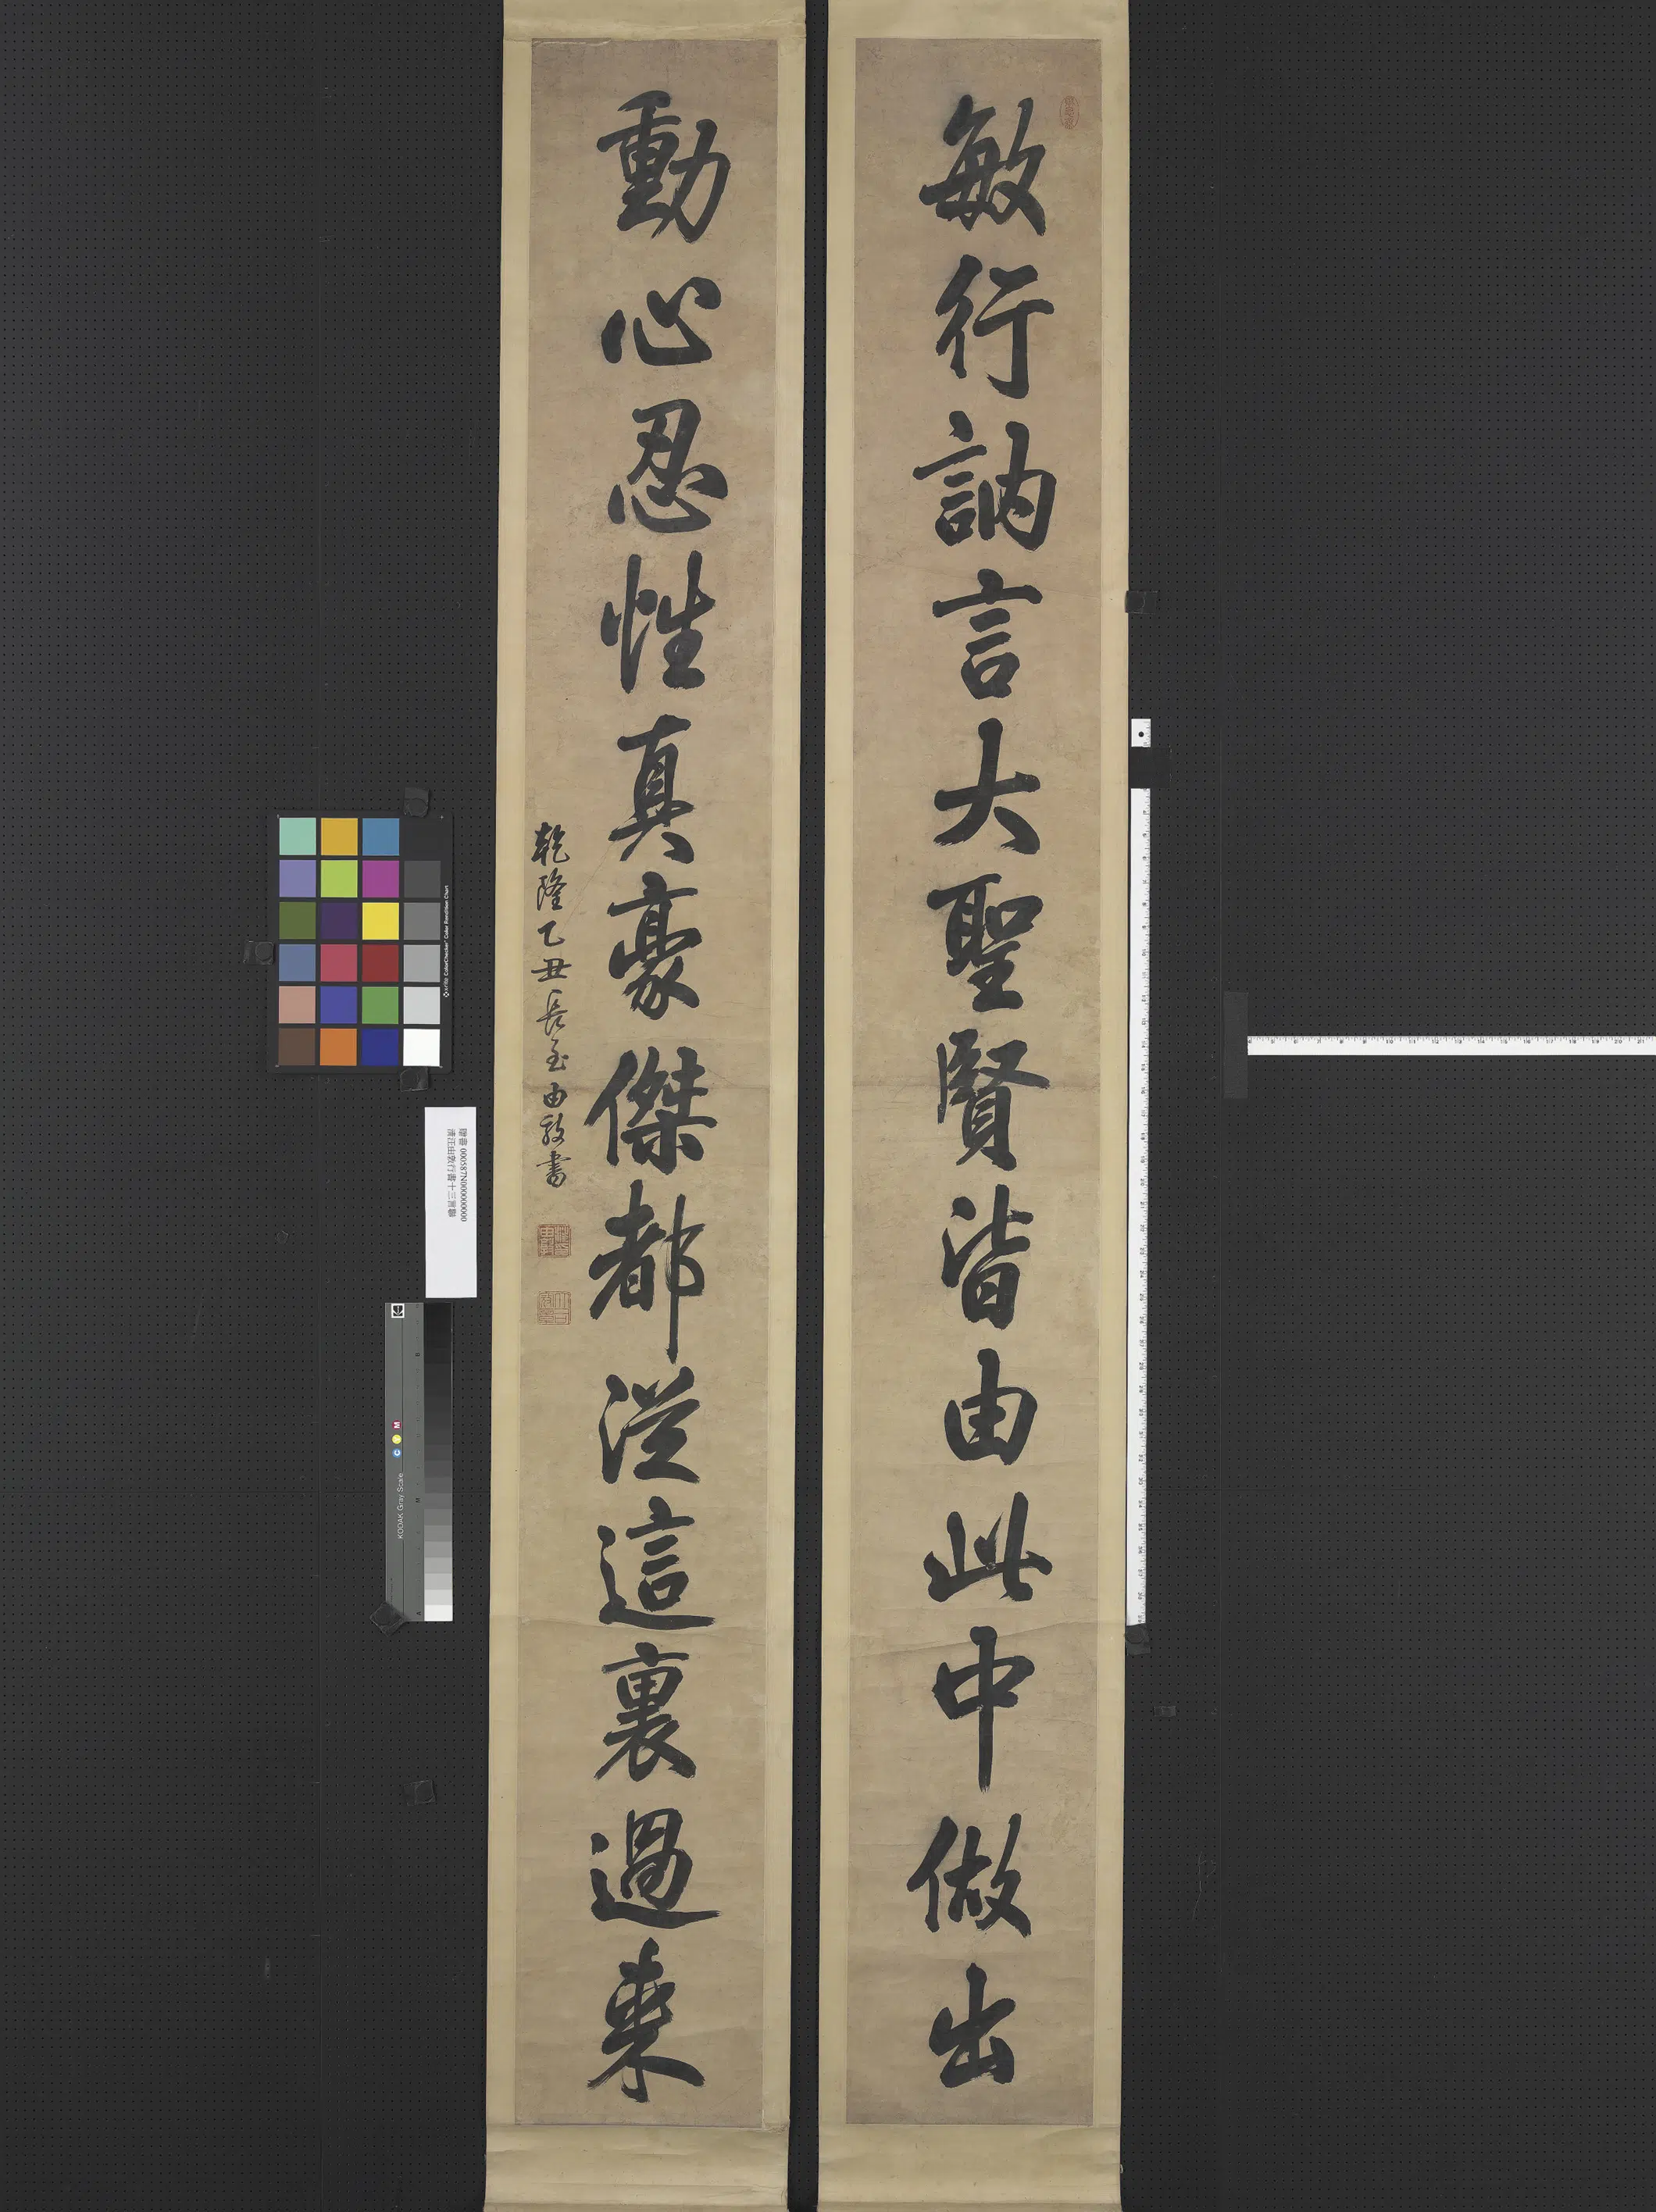 敏行訥言大聖賢皆由此中做出
動心忍性真豪傑都從這裏過來
乾隆乙丑長至由敦書
贈書 000587N000000000
清汪由敦行書十三言聯
KODAK Gray Scale
C Y M
x-rite ColorChecker Color Rendition Chart